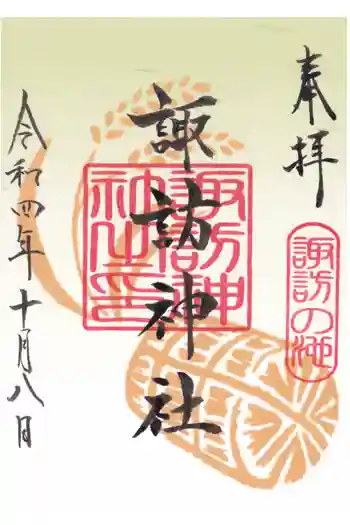 奉拝
諏訪の池
諏訪神社
諏訪神社之印
令和四年十月八日